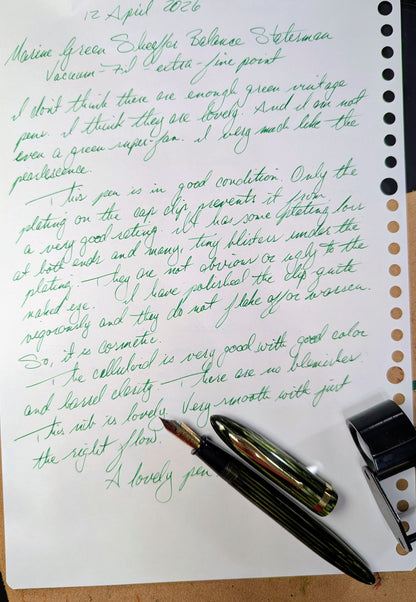 12 April 2026
Marine Green Sheaffer Balance Statesman
Vacuum-Fil - extra-fine point
I don't think there are enough green vintage
pens. I think they are lovely. And I am not
even a green super-fan. I very much like the
pearlescence.
This pen is in good condition. Only the
plating on the cap clip prevents it from
a very good rating. It has some plating loss
at both ends and many, tiny blisters under the
plating. They are not obvious or ugly to the
naked eye. I have polished the clip quite
vigorously and they do not flake off or worsen.
So, it is cosmetic.
The celluloid is very good with good color
and barrel clarity. There are no blemishes
This nib is lovely. Very smooth with just
the right flow.
A lovely pen